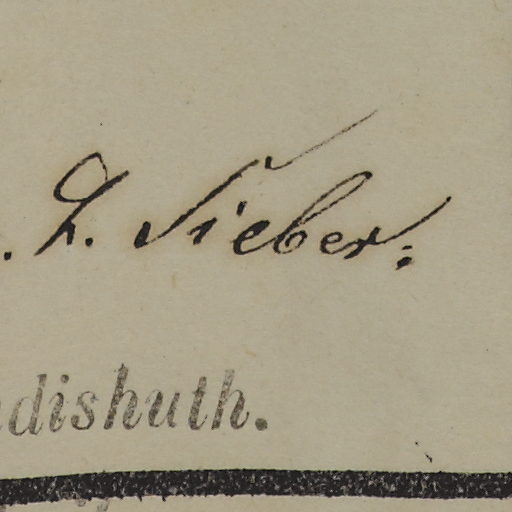 . L. Sieber.
dishuth.